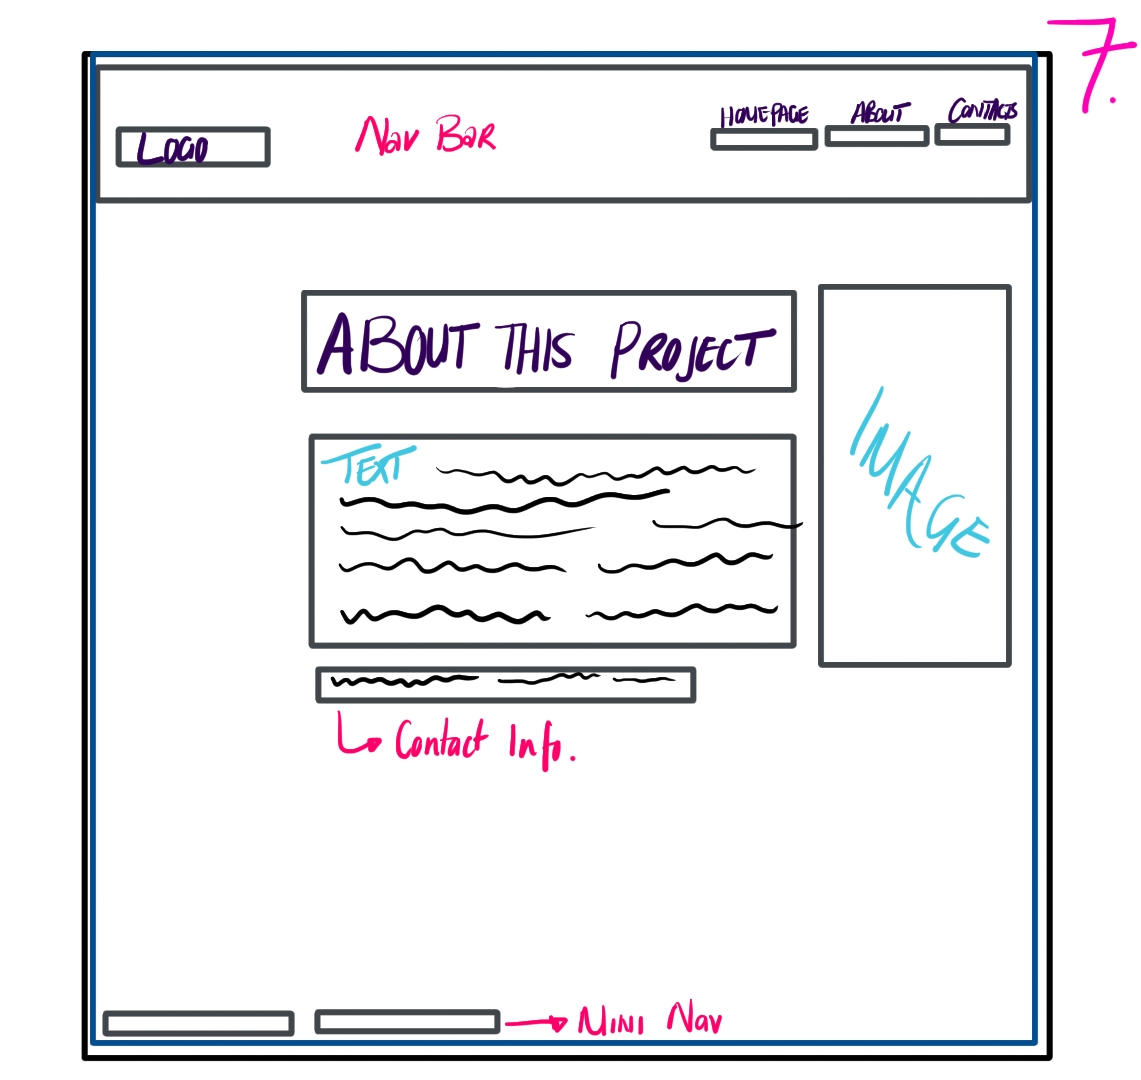 7.
LOGO
Nav BAR
HOMEPAGE
ABOUT
CONTACTS
ABOUT THIS PROJECT
TEXT
IMAGE
Contact Info.
MINI NAV